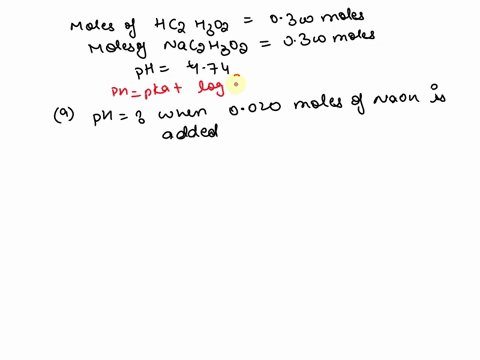 Moles of HC2H3O2 = 0.300 moles
Moles of NaC2H3O2 = 0.300 moles
pH = 4.74
pH = pka + log
(a) pH = ? when 0.020 moles of NaOH is
added